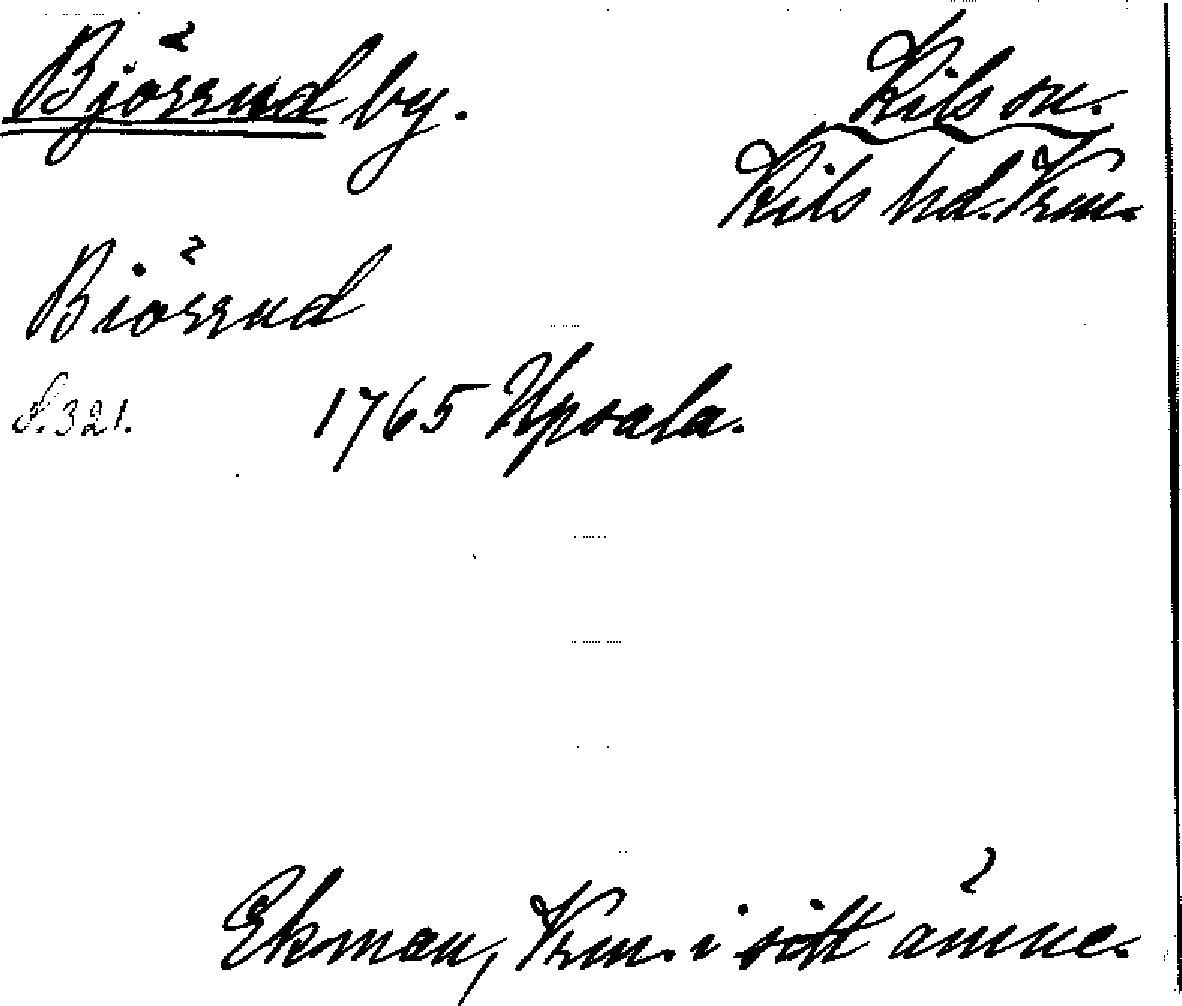 Björrud by. Kils sn.
Kils hd. Vrm.
Biörrud
S. 321. 1765 Upsala.
Ekman, Vrm. i sitt ämne.